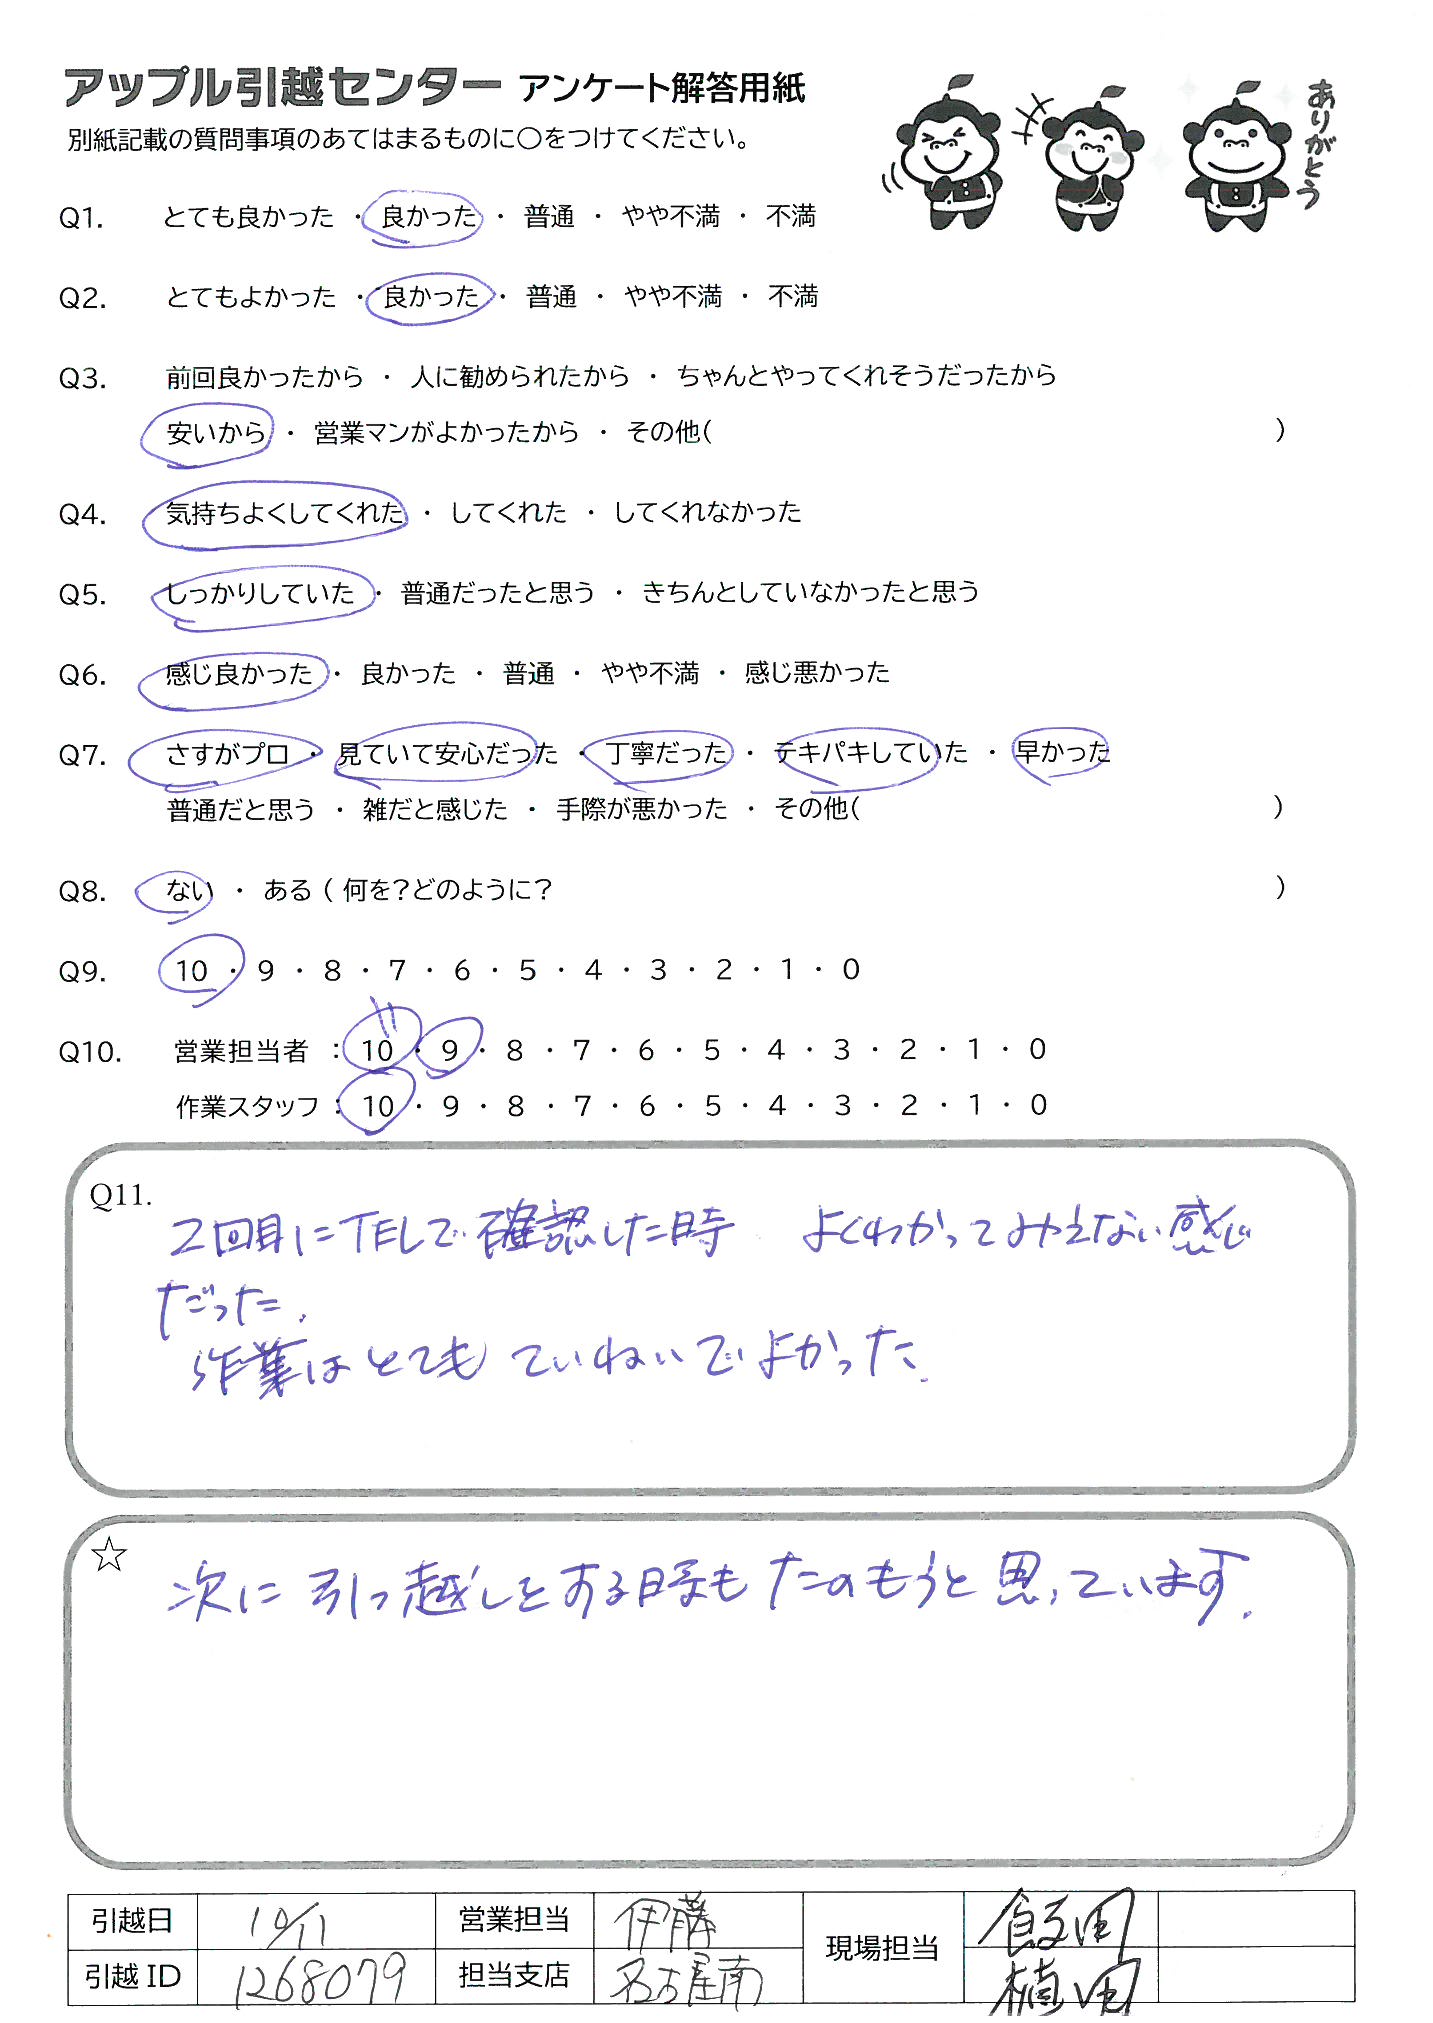 アップル引越センター アンケート解答用紙
別紙記載の質問事項のあてはまるものに〇をつけてください。
ありがとう
Q1. とても良かった ・ 良かった ・ 普通 ・ やや不満 ・ 不満
Q2. とてもよかった ・ 良かった ・ 普通 ・ やや不満 ・ 不満
Q3. 前回良かったから ・ 人に勧められたから ・ ちゃんとやってくれそうだったから
安いから ・ 営業マンがよかったから ・ その他( )
Q4. 気持ちよくしてくれた ・ してくれた ・ してくれなかった
Q5. しっかりしていた ・ 普通だったと思う ・ きちんとしていなかったと思う
Q6. 感じ良かった ・ 良かった ・ 普通 ・ やや不満 ・ 感じ悪かった
Q7. さすがプロ ・ 見ていて安心だった ・ 丁寧だった ・ テキパキしていた ・ 早かった
普通だと思う ・ 雑だと感じた ・ 手際が悪かった ・ その他( )
Q8. ない ・ ある ( 何を?どのように? )
Q9. 10 ・ 9 ・ 8 ・ 7 ・ 6 ・ 5 ・ 4 ・ 3 ・ 2 ・ 1 ・ 0
Q10. 営業担当者 : 10 ・ 9 ・ 8 ・ 7 ・ 6 ・ 5 ・ 4 ・ 3 ・ 2 ・ 1 ・ 0
作業スタッフ : 10 ・ 9 ・ 8 ・ 7 ・ 6 ・ 5 ・ 4 ・ 3 ・ 2 ・ 1 ・ 0
Q11.
2回目にTELで確認した時 よくわかってみえない感じ
だった.
作業はとても ていねいでよかった.
☆
次に引っ越しをする時も たのもうと思っています.
引越日 10/11 営業担当 伊藤 現場担当 飯田
引越ID 1268079 担当支店 名古屋南 植田